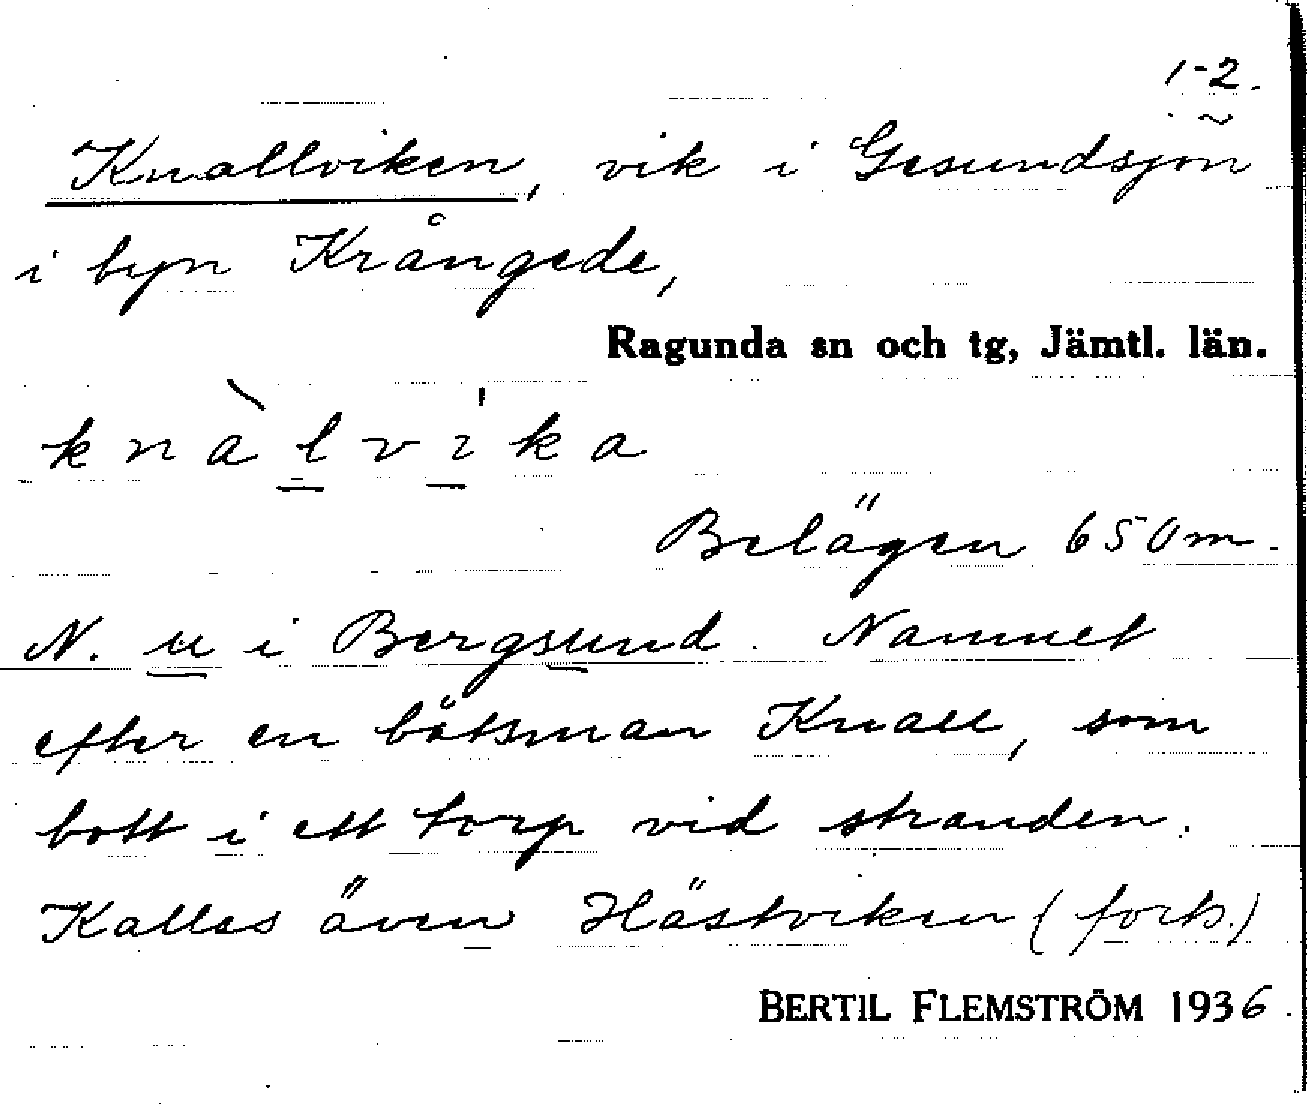 1-2.
Knallviken, vik i Gesundsjön
i byn Krångede,
Ragunda sn och tg, Jämtl. län.
knàlvìka
Belägen 650m.
N. u i Bergsund. Namnet
efter en båtsman Knall, som
bott i ett torp vid stranden.
Kallas även Hästviken (forts.)
BERTIL FLEMSTRÖM 1936.